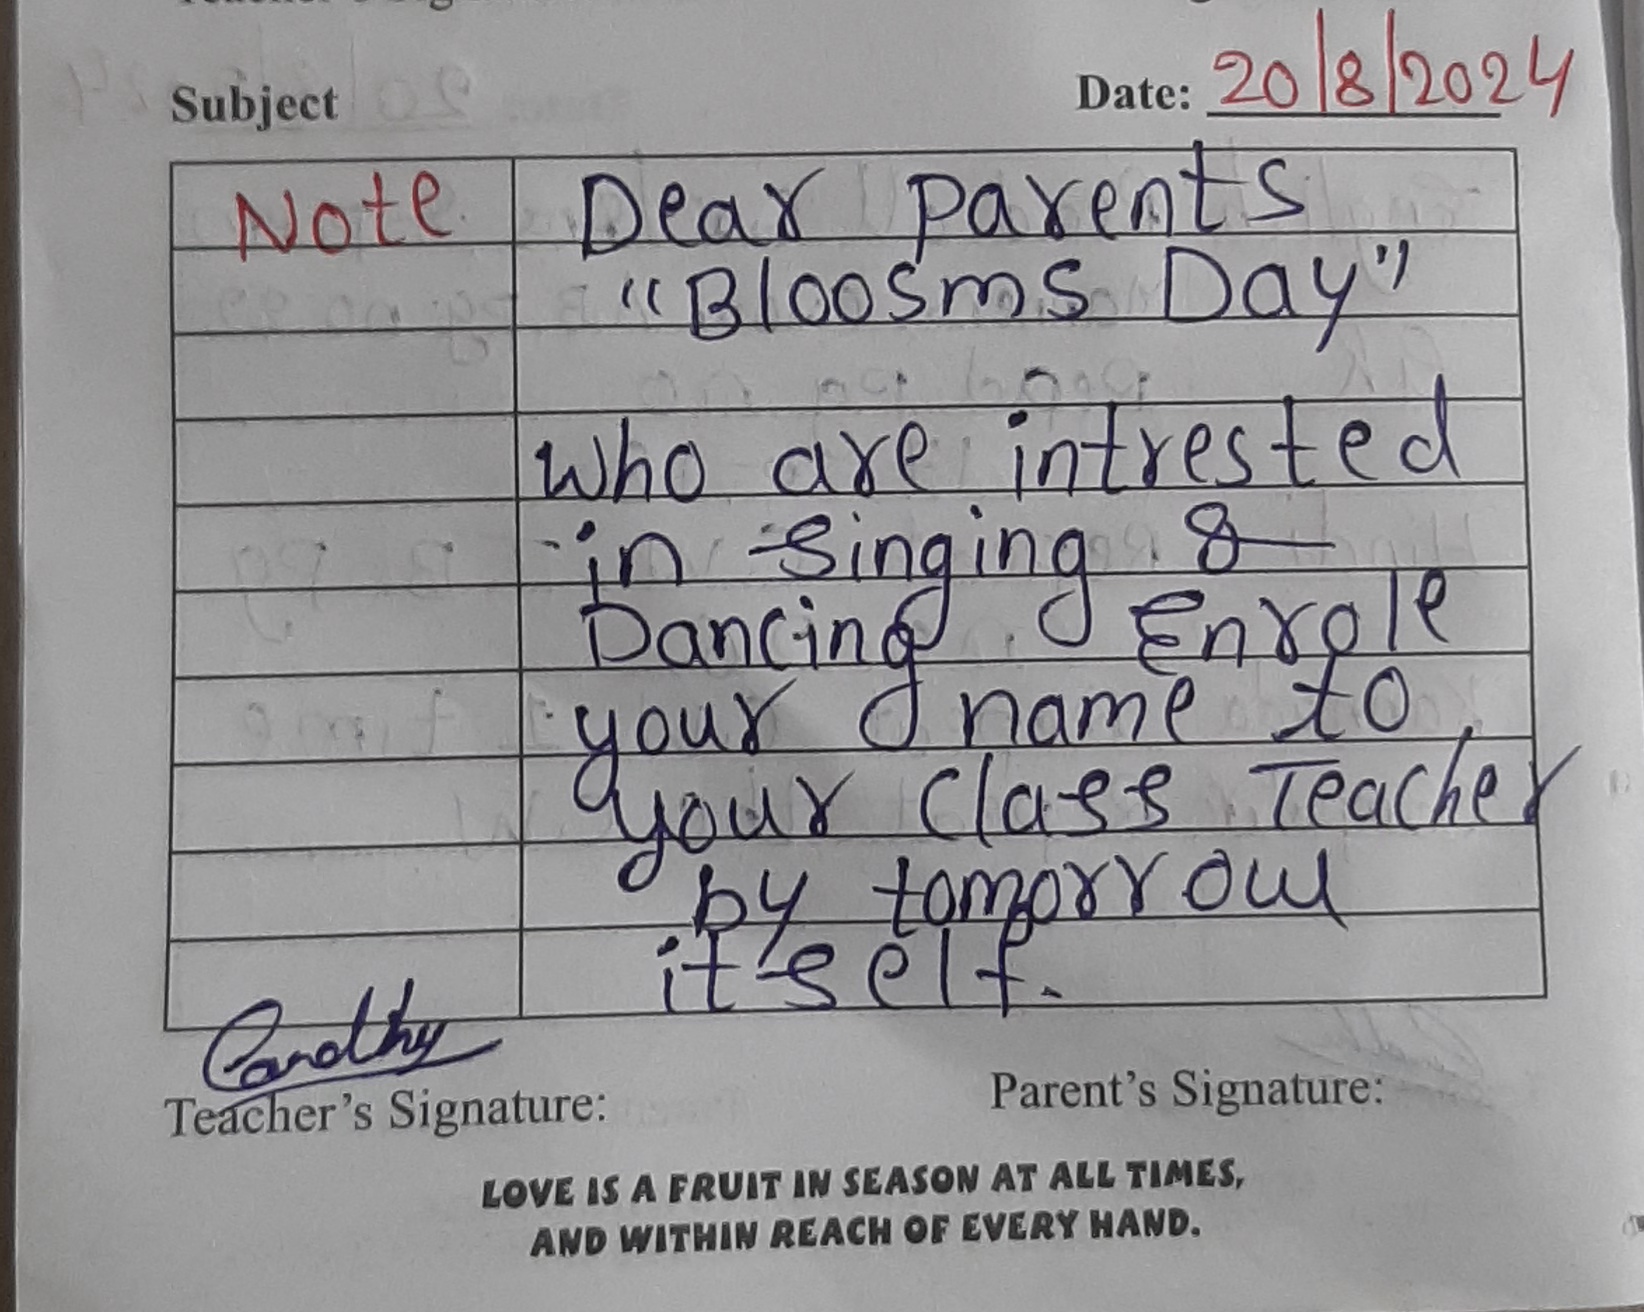 Subject
Date: 20/8/2024
Note Dear parents
"Bloosms Day"
who are intrested
in singing &
Dancing Enrole
your name to
your class Teacher
by tomorrow
itself.
Teacher's Signature:
Parent's Signature:
LOVE IS A FRUIT IN SEASON AT ALL TIMES,
AND WITHIN REACH OF EVERY HAND.